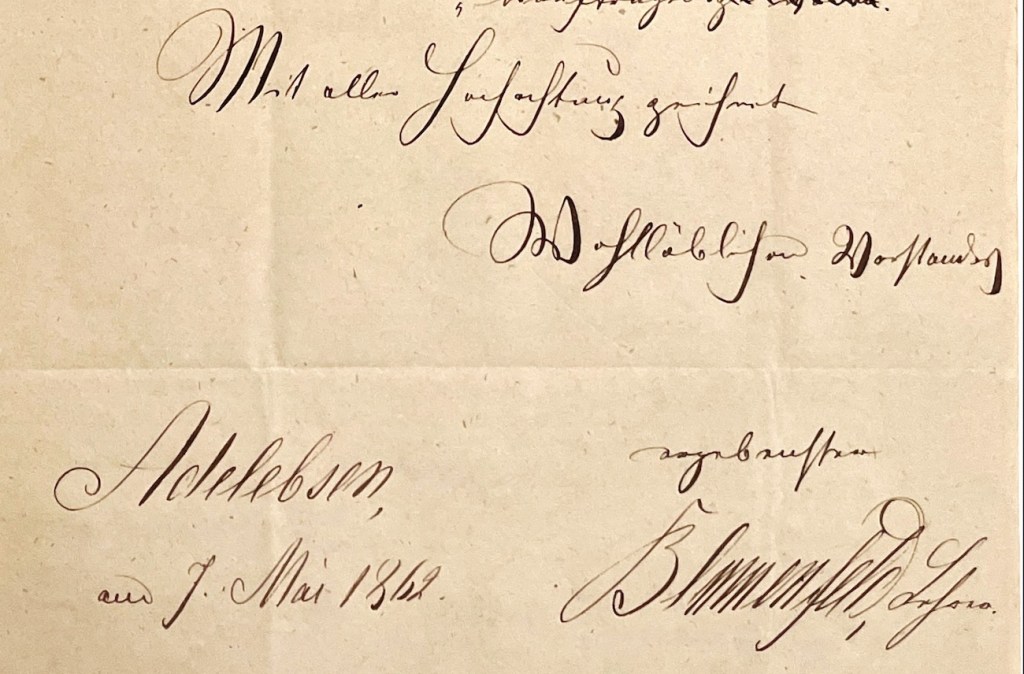 Mit aller Hochachtung zeichnet
Wohllöblichen Vorstandes
Adelebsen,
ergebenster
am 7. Mai 1862.
Blumenfeld, Lehrer.